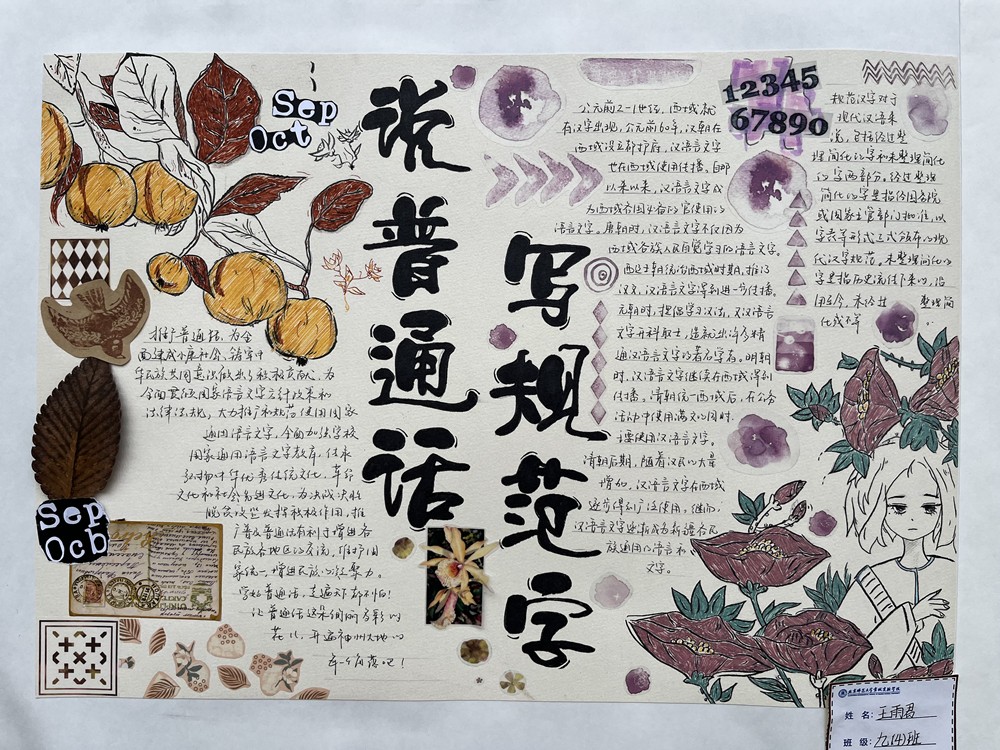 Sep
Oct
说普通话
写规范字
推广普通话，为全
面建成小康社会，铸牢中
华民族共同意识做出积极贡献，为
全面贯彻国家语言文字方针政策和
法律法规，大力推广和规范使用国家
通用语言文字，全面加强学校
国家通用语言文字教育，传承
弘扬中华优秀传统文化，革命
文化和社会先进文化，为决战决胜
脱贫攻坚发挥积极作用，推
广普及普通话有利于增进各
民族各地区的交流，维护国
家统一，增进民族的凝聚力。
写好普通话，走遍天下都不怕！
让普通话这朵绚丽多彩的
花儿，开遍神州大地的
每一个角落吧！
Sep
Ocb
公元前2-1世纪，西域就
有汉字出现，公元前60年，汉朝在
西域设立都护府，汉语言文字
也在西域使用传播。自那
以来以来，汉语言文字成
为西域各国必备的官使用的
语言文字。唐朝时，汉语言文字不仅因为
西域各族人民自觉学习的语言文字。
西辽王朝统治西域时期，推行
汉文，汉语言文字得到进一步传播。
元朝时，提倡学习汉法，双汉语言
文字开科取士，造就出许多精
通汉语言文字的著名学者。明朝
时，汉语言文字继续在西域得到
传播。清朝统一西域后，在公务
活动中使用满文的同时，
主要使用汉语言文字。
清朝后期，随着汉民的大量
增加，汉语言文字在西域
逐步得到广泛使用，继而，
汉语言文字逐渐成为新疆各民
族通用的语言和
文字。
12345
67890
规范汉字对于
现代汉语来
说，包括经过整
理简化的字和未整理简化
的字两部分。经过整理
简化的字是指经国务院
或国家主管部门批准，以
字表等形式正式颁布的现
代汉字规范。未整理简化的
字是指历史流传下来的，沿
用至今，未经过 整理简
化或不
姓 名：王雨君
班 级：九(4)班